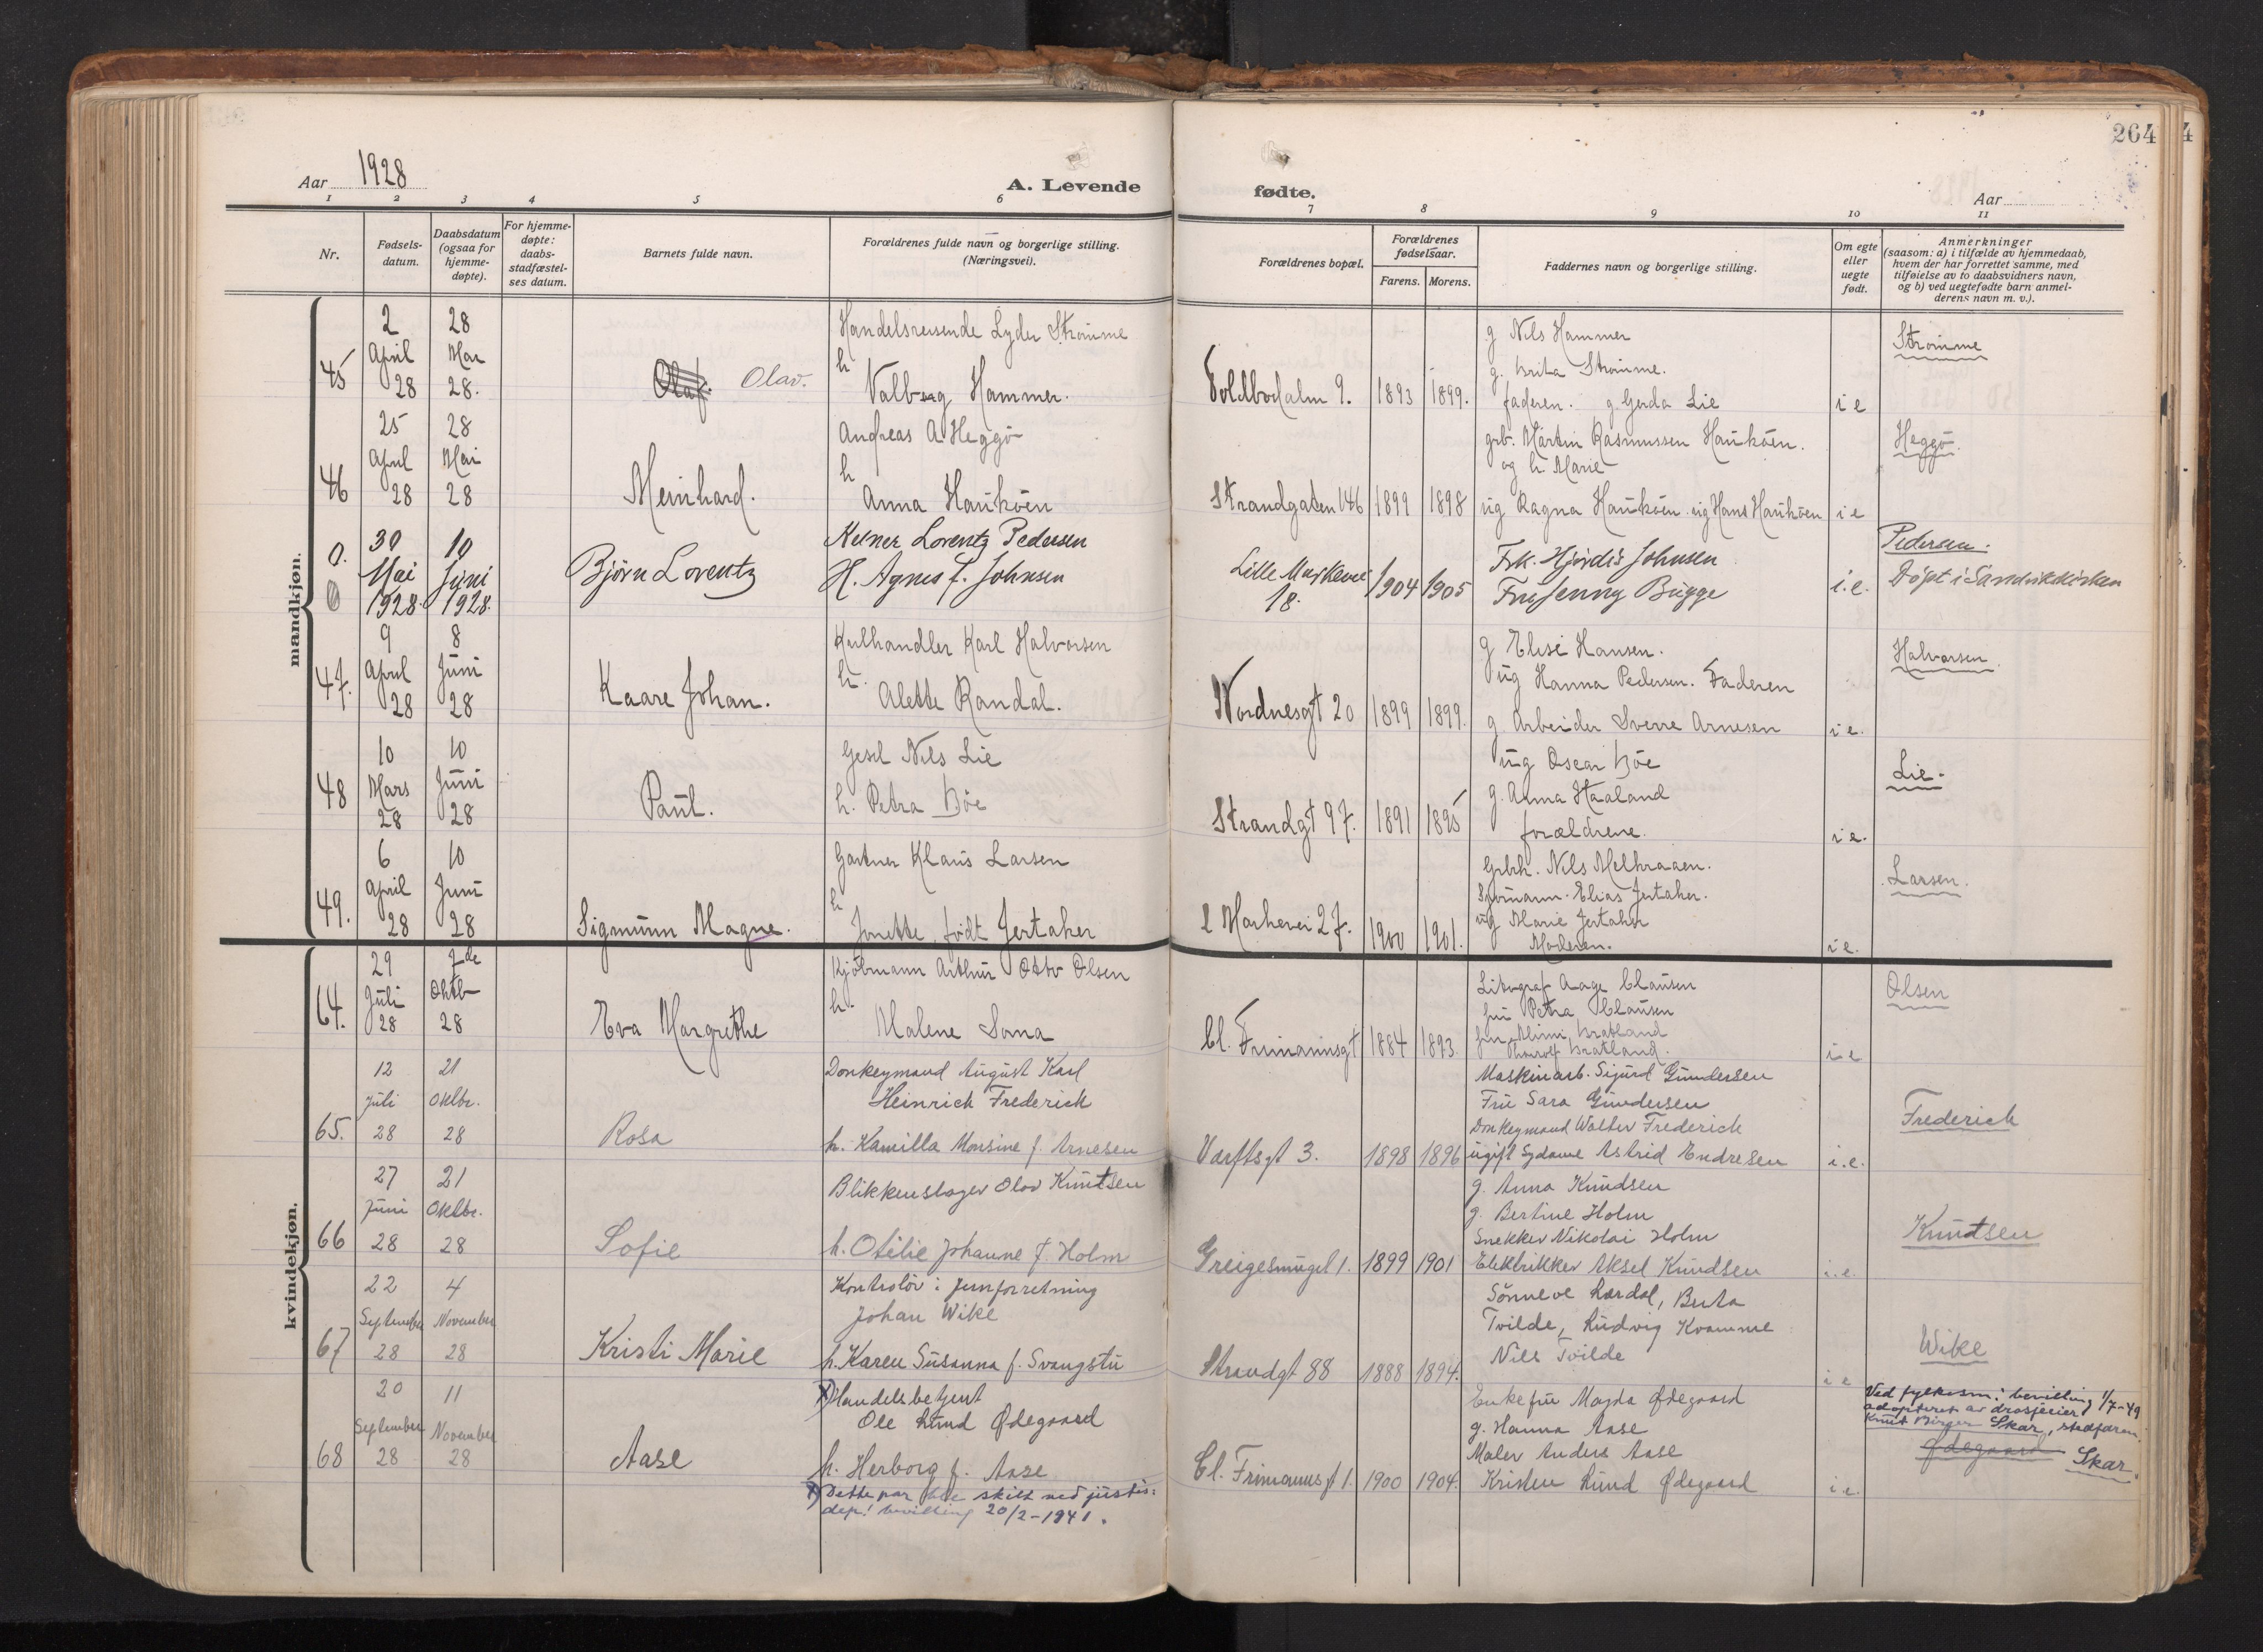 264
Aar 1928
A. Levende
fødte.
Aar
1 2 3 4 5 6 7 8 9 10 11
Nr.
Fødsels-
datum.
Daabsdatum
(ogsaa for
hjemme-
døpte).
For hjemme-
døpte:
daabs-
stadfæstel-
ses datum.
Barnets fulde navn.
Forældrenes fulde navn og borgerlige stilling.
(Næringsvei).
Forældrenes bopæl.
Forældrenes
fødselsaar.
Farens. Morens.
Faddernes navn og borgerlige stilling.
Om egte
eller
uegte
født.
Anmerkninger
(saasom: a) i tilfælde av hjemmedaab,
hvem der har forrettet samme, med
tilføielse av to daabsvidners navn,
og b) ved uegtefødte barn anmel-
derens navn m. v.).
mandkjøn.
45
2 April 28
28 Mai 28.
Olaf. Olav.
Handelsreisende Lyder Strømme
h
Valborg Hammer.
Toldbodalm 9.
1893 1899.
g Nils Hammer
g. Brita Strømme.
faderen. g Gerda Lie
i e
Strømme
46
25 April 28
28 Mai 28
Meinhard.
Andreas A Heggö
h
Anna Haukøen
Strandgaten 146
1899 1898
grb. Martin Rasmussen Haukøen.
og h. Marie
ug Ragna Haukøen. ug Hans Haukøen
i e
Heggö.
0.
30 Mai 1928.
10 Juni 1928.
Björn Lorentz
Kelner Lorentz Pedersen
H. Agnes f. Johnsen
Lille Markevei
18.
1904 1905
Frk. Hjördis Johnsen
Fru Jenny Bugge
i.e.
Pedersen.
Döpt i Sandvikskirken
47.
9 April 28
8 Juni 28
Kaare Johan.
Kulhandler Karl Halvorsen
h.
Alette Randal.
Nordnesgt 20
1899 1899.
g Elise Hansen.
ug Hanna Pedersen. Faderen
g. Arbeider Sverre Arnesen
i e.
Halvorsen.
48
10 Mars 28
10 Juni 28
Paul.
Gesel Nils Lie
h. Petra Bøe
Strandgt 97.
1891 1895
ug Oscar Bøe
g. Anna Haaland
forældrene.
i e.
Lie.
49.
6 April 28
10 Juni 28
Sigmunn Magne.
Gartner Klaus Larsen
h
Jonette, født Jertaker
l Markevei 27.
1900 1901.
Grbrh. Nils Melkraaen.
Sjömann. Elias Jertaker.
ug Marie Jertaker
Moderen.
i e.
Larsen.
kvindekjøn.
64.
29 Juli 28
7de Oktb 28
Eva Margrethe
Kjøbmann Arthur Otto Olsen
h.
Malene Soma
Cl. Frimannsgt
1884 1893.
Litograf Aage Clausen
fru Petra Clausen
fru Minni Bratland
Thoralf Bratland.
i e
Olsen
65.
12 Juli 28
21 Oktbr. 28
Rosa
Donkeymand August Karl
Heinrich Frederich
h. Kamilla Monsine f. Arnesen
Værftsgt 3.
1898 1896
Maskinarb. Sigurd Gundersen
Fru Sara Gundersen
Donkeymand Walter Frederich
ugift Sydame Astrid Endresen
i.e.
Frederich
66
27 Juni 28
21 Oktbr. 28
Sofie
Blikkenslager Olav Knutsen
h. Otilie Johanne f. Holm
Greigesmuget 1.
1899 1901
g. Anna Knudsen
g. Bertine Holm
Snekker Nikolai Holm
Elektrikker Aksel Knudsen
i.e.
Knudtsen
67
22 September 28
4 November 28
Kristi Marie
Kontrolör i Jernforretning
Johan Wike
h. Karen Susanna f. Svangstu
Strandgt 88
1888 1894.
Sönneve Lærdal, Berta
Tvilde, Ludvig Kvamme
Nils Tvilde
i e
Wike
68
20 September 28
11 November 28
Aase
x) Handelsbetjent
Ole Lund Ødegaard
h. Herborg f. Aase
x) Dette par ble skilt ved justis:
dep! bevilling 20/2-1941.
Cl. Frimannsgt 1.
1900 1904.
Enkefru Magda Ødegaard
g. Hanna Aase
Maler Anders Aase
Kristen Lund Ødegaard
i.e.
Ved fylkesm: bevilling 1/7-49
adopteret av drosjeeier
Knut Birger Skar, stedfaren.
Ødegaard Skar.